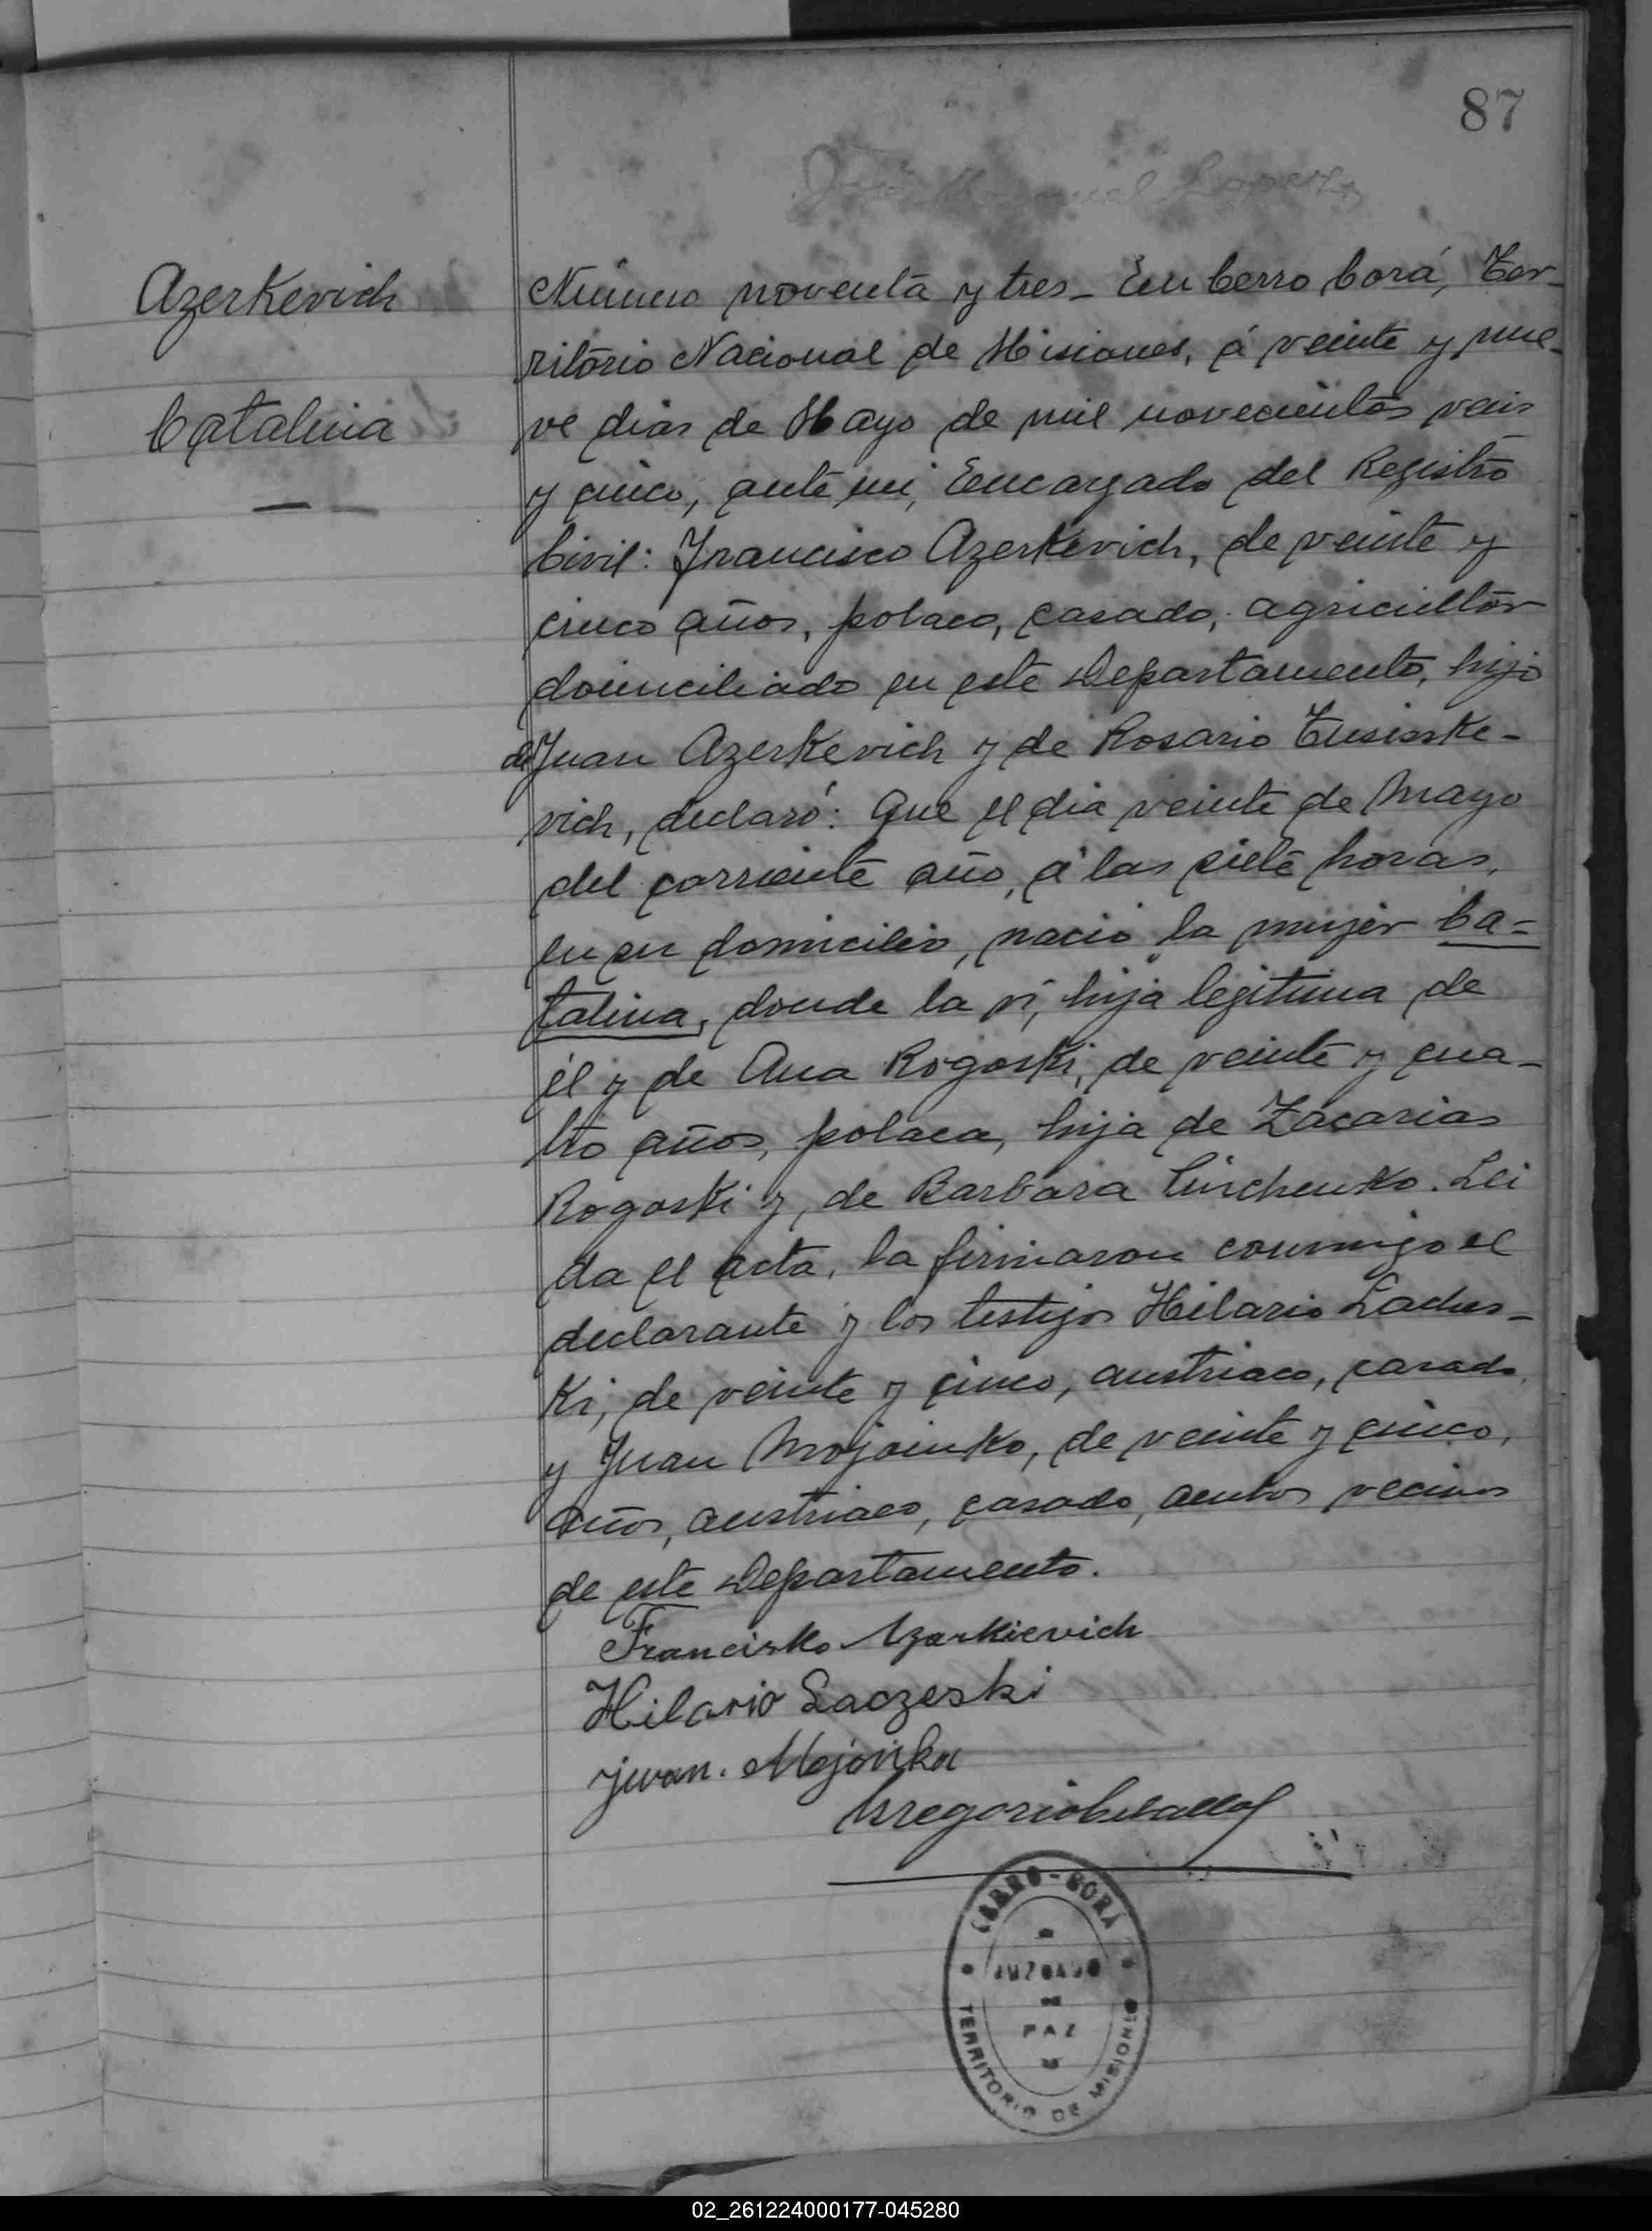 87
José Manuel Lopez
Azerkevich
Catalina
Número noventa y tres - En Cerro Corá, Ter-
ritório Nacional de Misiones, á veinte y nue-
ve dias de Mayo de mil novecientos vein
y cinco, ante mi, Encargado del Registro
Civil: Francisco Azerkevich, de veinte y
cinco años, polaco, casado, agricultor
domiciliado en este Departamento, hijo
de Juan Azerkevich y de Rosario
vich, declaró: Que el dia veinte de Mayo
del corriente año, á las siete horas,
en su domicilio, nació la mujer Ca-
talina, donde la ví, hija legitima de
él y de Ana Rogoski, de veinte y cua-
tro años, polaca, hija de Zacarias
Rogoski y, de Barbara Linchenko. Lei
da el acta, la firmaron conmigo el
declarante y los testigos Hilario Laches-
ki, de veinte y cinco, austriaco, casado,
y Juan Mojoinko, de veinte y cinco,
años, austriaco, casado, ambos vecinos
de este Departamento.
Francisko Azarkievich
Hilario Laczeski
juan. Mojoinka
Gregorio
CERRO-CORÁ
JUZGADO
PAZ
TERRITORIO DE MISIONES
02_261224000177-045280